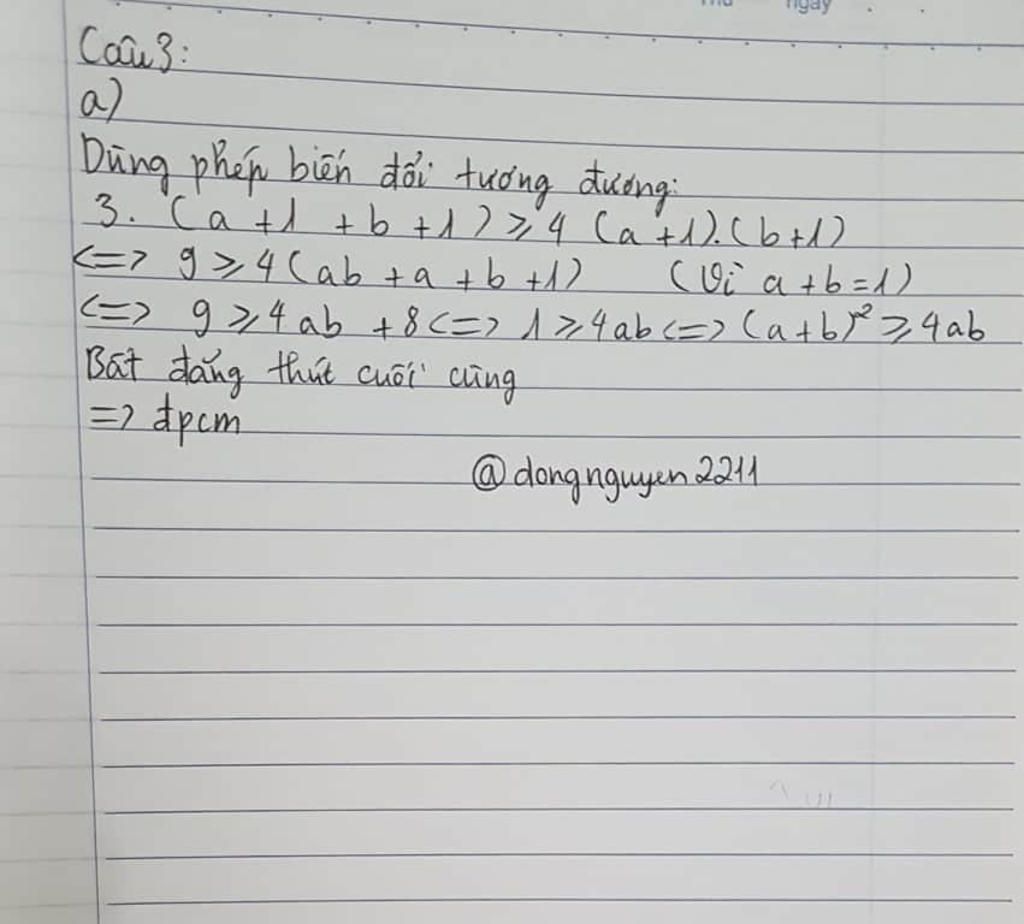 Thứ ngày
Câu 3:
a)
Dùng phép biến đổi tương đương:
3. (a + 1 + b + 1) ≥ 4 (a + 1).(b + 1)
<=> 9 ≥ 4 (ab + a + b + 1) (Vì a + b = 1)
<=> 9 ≥ 4ab + 8 <=> 1 ≥ 4ab <=> (a + b)² ≥ 4ab
Bất đẳng thức cuối cùng
=> đpcm
@dongnguyen2211